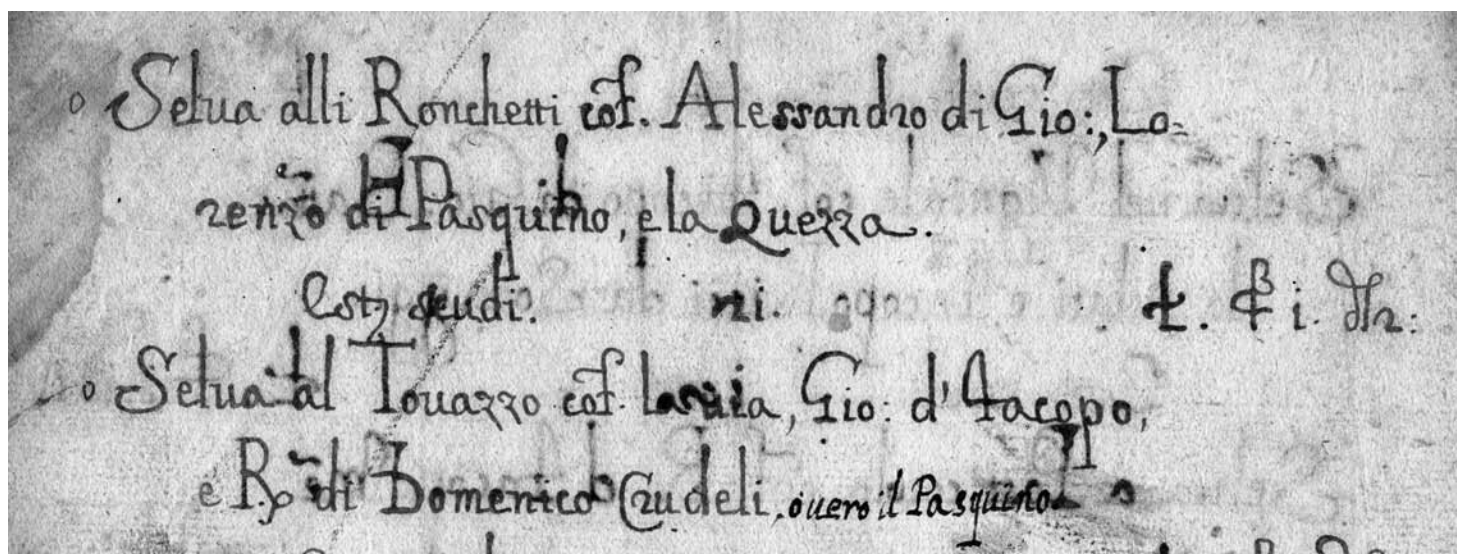 Selua alli Ronchetti cof. Alessandro di Gio:, Lo-
renzo di Pasquino, e la Querza.
Est; scudi. ni. £. i.
Selua al Touazzo cof. la uia, Gio: d'Iacopo,
e Rº di Domenico Crudeli, ouero il Pasquino